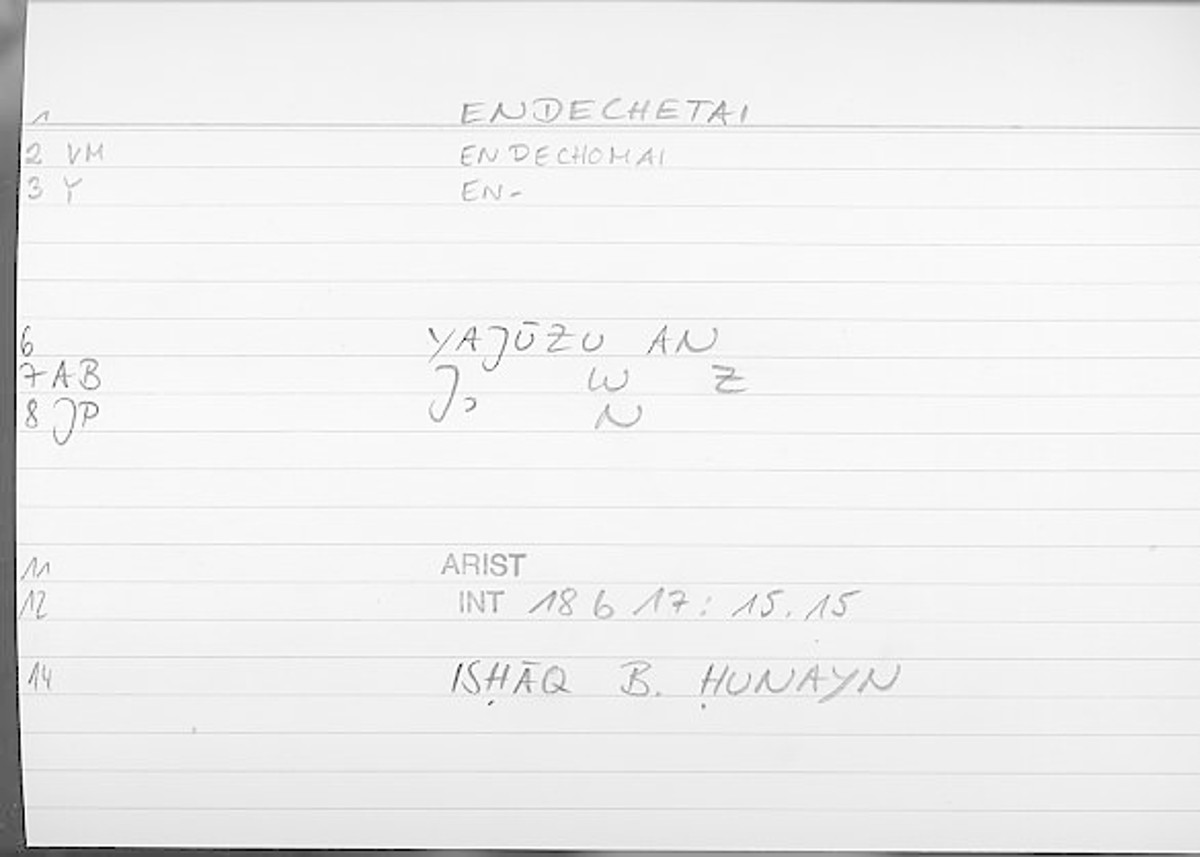 1 ENDECHETAI
2 VM ENDECHOMAI
3 Y EN-
6 YAJŪZU AN
7 AB J W Z
8 JP N
11 ARIST
12 INT 18 b 17: 15.15
14 ISḤĀQ B. ḤUNAYN